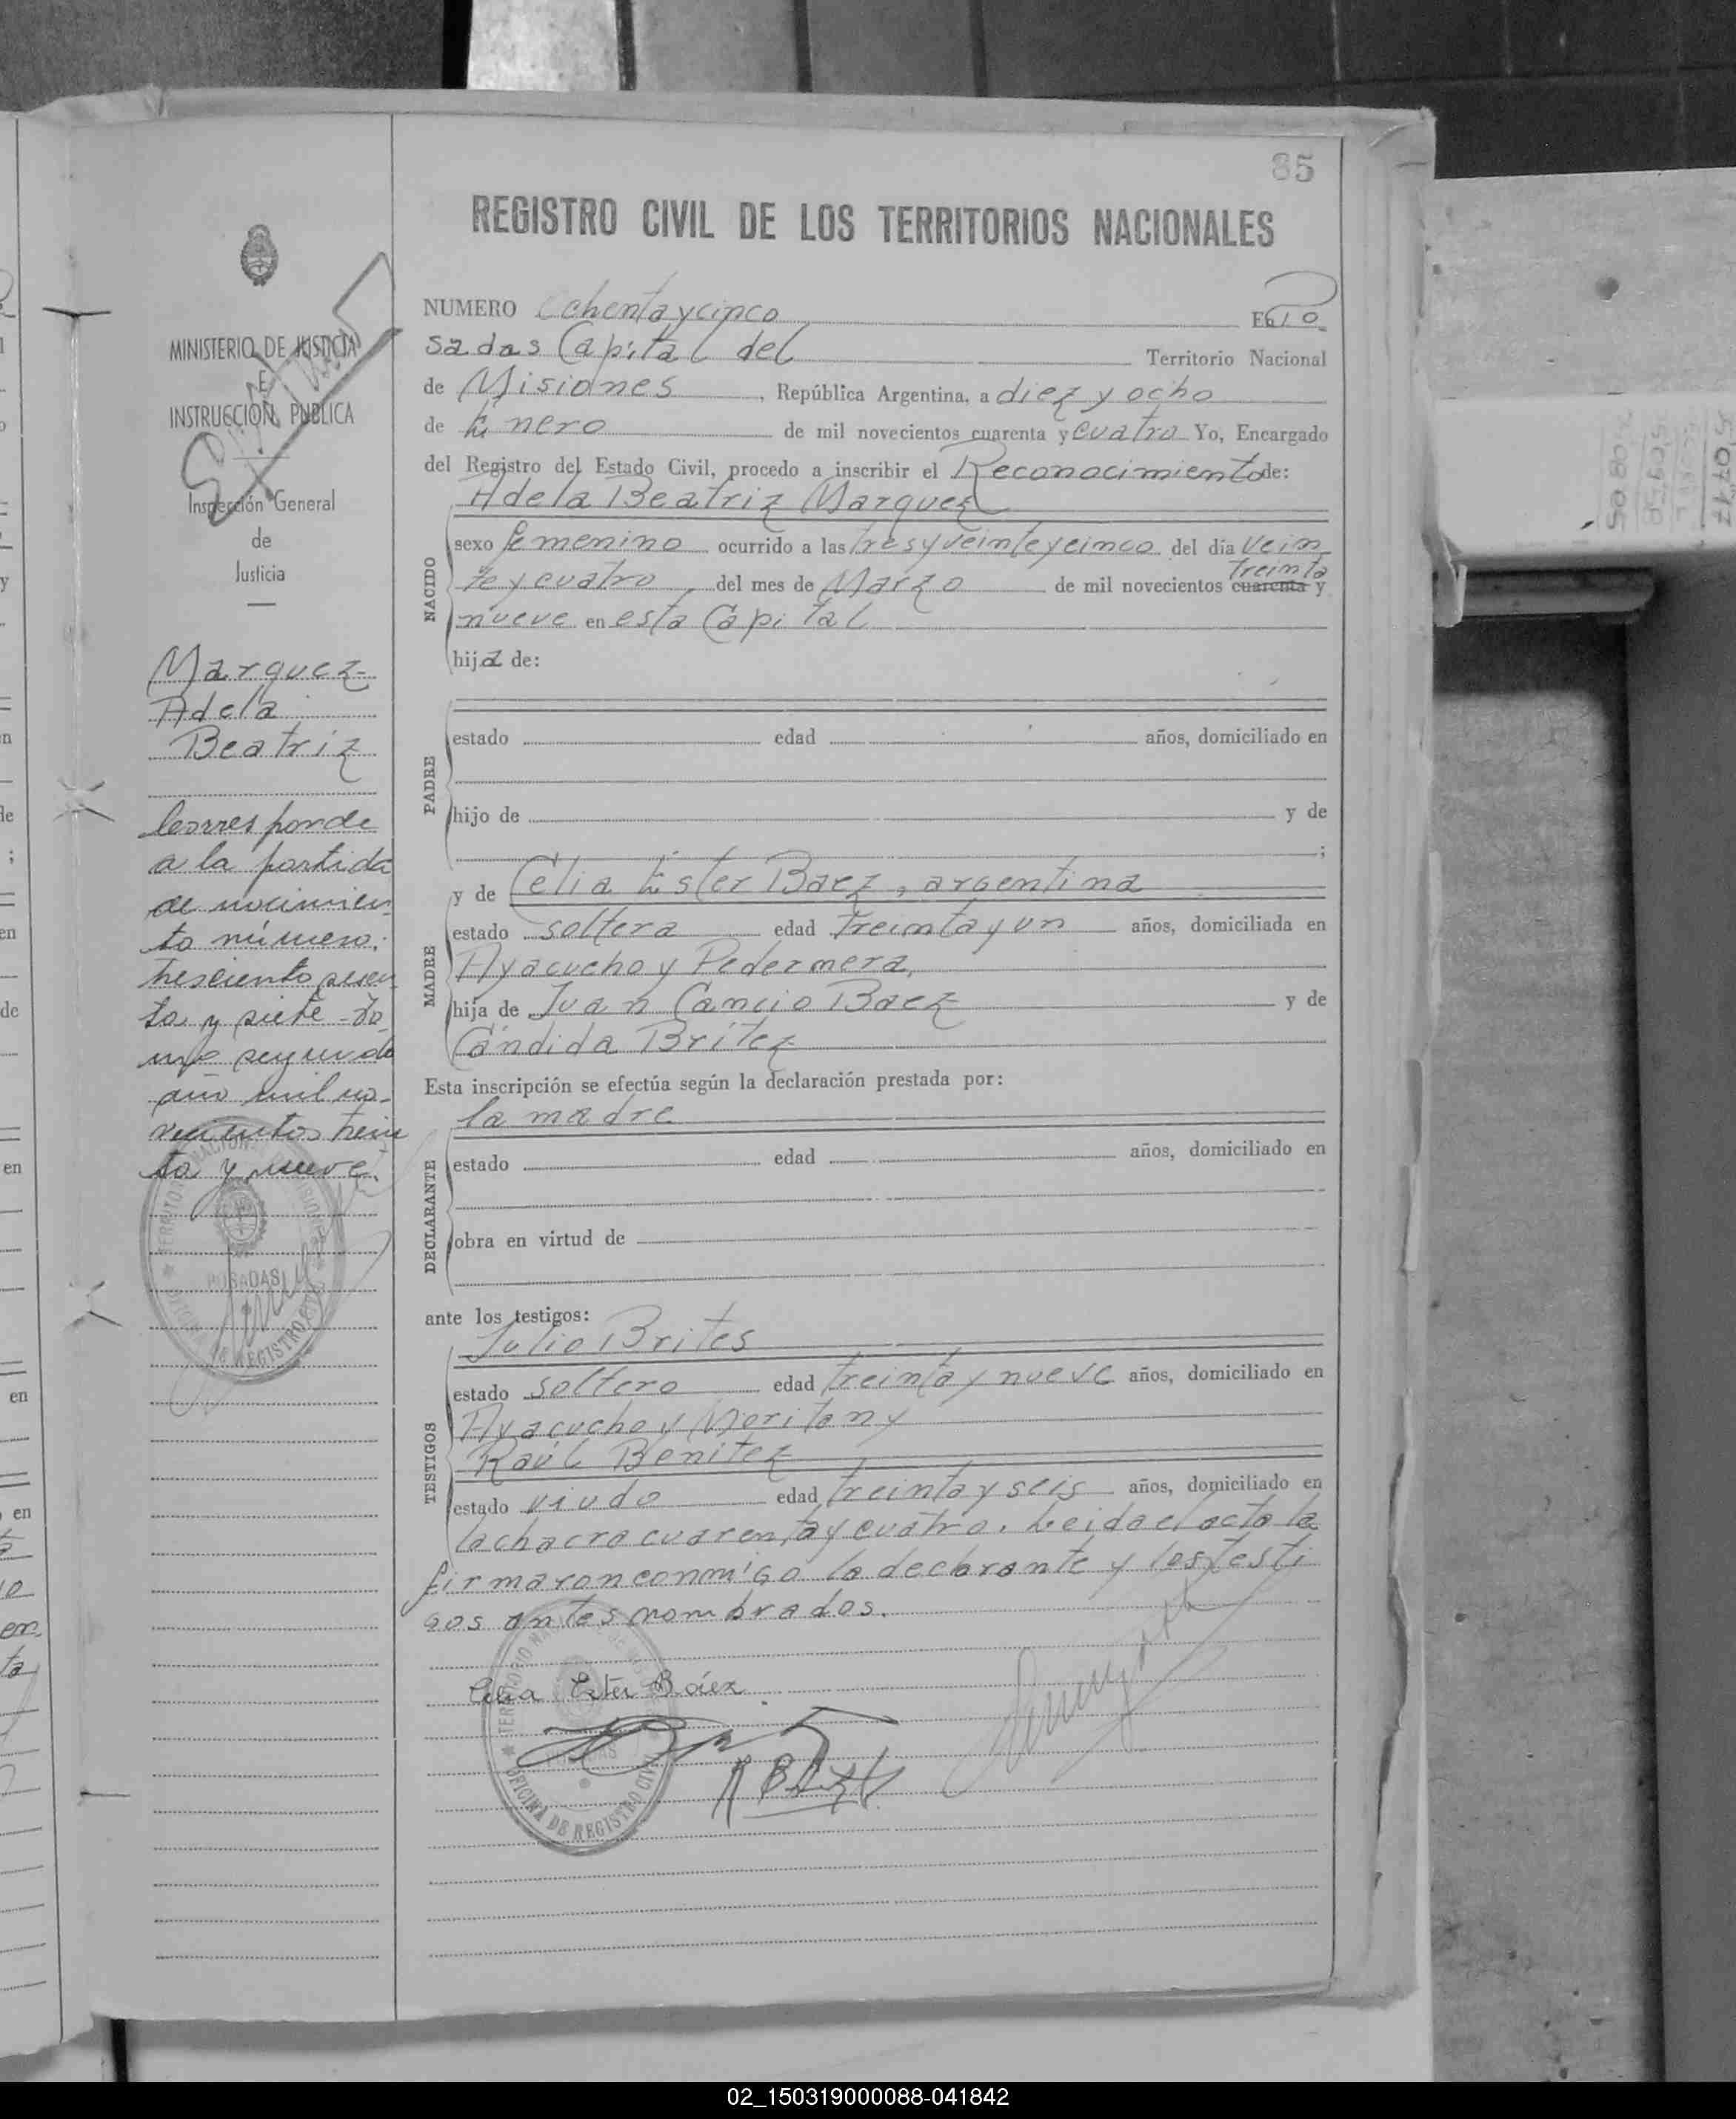 85
REGISTRO CIVIL DE LOS TERRITORIOS NACIONALES
NUMERO Ochenta y cinco En Po
sadas Capital del Territorio Nacional
de Misiones, República Argentina, a diez y ocho
de Enero de mil novecientos cuarenta y cuatro Yo, Encargado
del Registro del Estado Civil, procedo a inscribir el Reconocimiento de:
Adela Beatriz Marquez
NACIDO
sexo femenino ocurrido a las tres y veinte y cinco del dia vein
te y cuatro del mes de Marzo de mil novecientos cuarenta treinta y
nueve en esta Capital
hija de:
PADRE
estado edad años, domiciliado en
hijo de y de
;
MADRE
y de Celia Ester Baez, argentina
estado soltera edad treinta y un años, domiciliada en
Ayacucho y Pedermera,
hija de Juan Cancio Baez y de
Cándida Brítez
Esta inscripción se efectúa según la declaración prestada por:
la madre
DECLARANTE
estado edad años, domiciliado en
obra en virtud de
ante los testigos:
TESTIGOS
Julio Brites
estado soltero edad treinta y nueve años, domiciliado en
Ayacucho y Moritany
Raúl Benitez
estado viudo edad treinta y seis años, domiciliado en
la chacra cuarenta y cuatro. Leida el acta la
firmaron conmigo la declarante y los testi
gos antes nombrados.
Celia Ester Báez
TERRITORIO NACIONAL DE MISIONES
OFICINA DE REGISTRO CIVIL
MINISTERIO DE JUSTICIA
E
INSTRUCCION PUBLICA
Inspección General
de
Justicia
Marquez
Adela
Beatriz
Corresponde
a la partida
de nacimien
to número:
tresciento sesen
ta y siete - To
mo segundo
año mil no-
vecientos trein
ta y nueve.
TERRITORIO NACIONAL DE MISIONES
POSADAS
OFICINA DE REGISTRO CIVIL
02_150319000088-041842